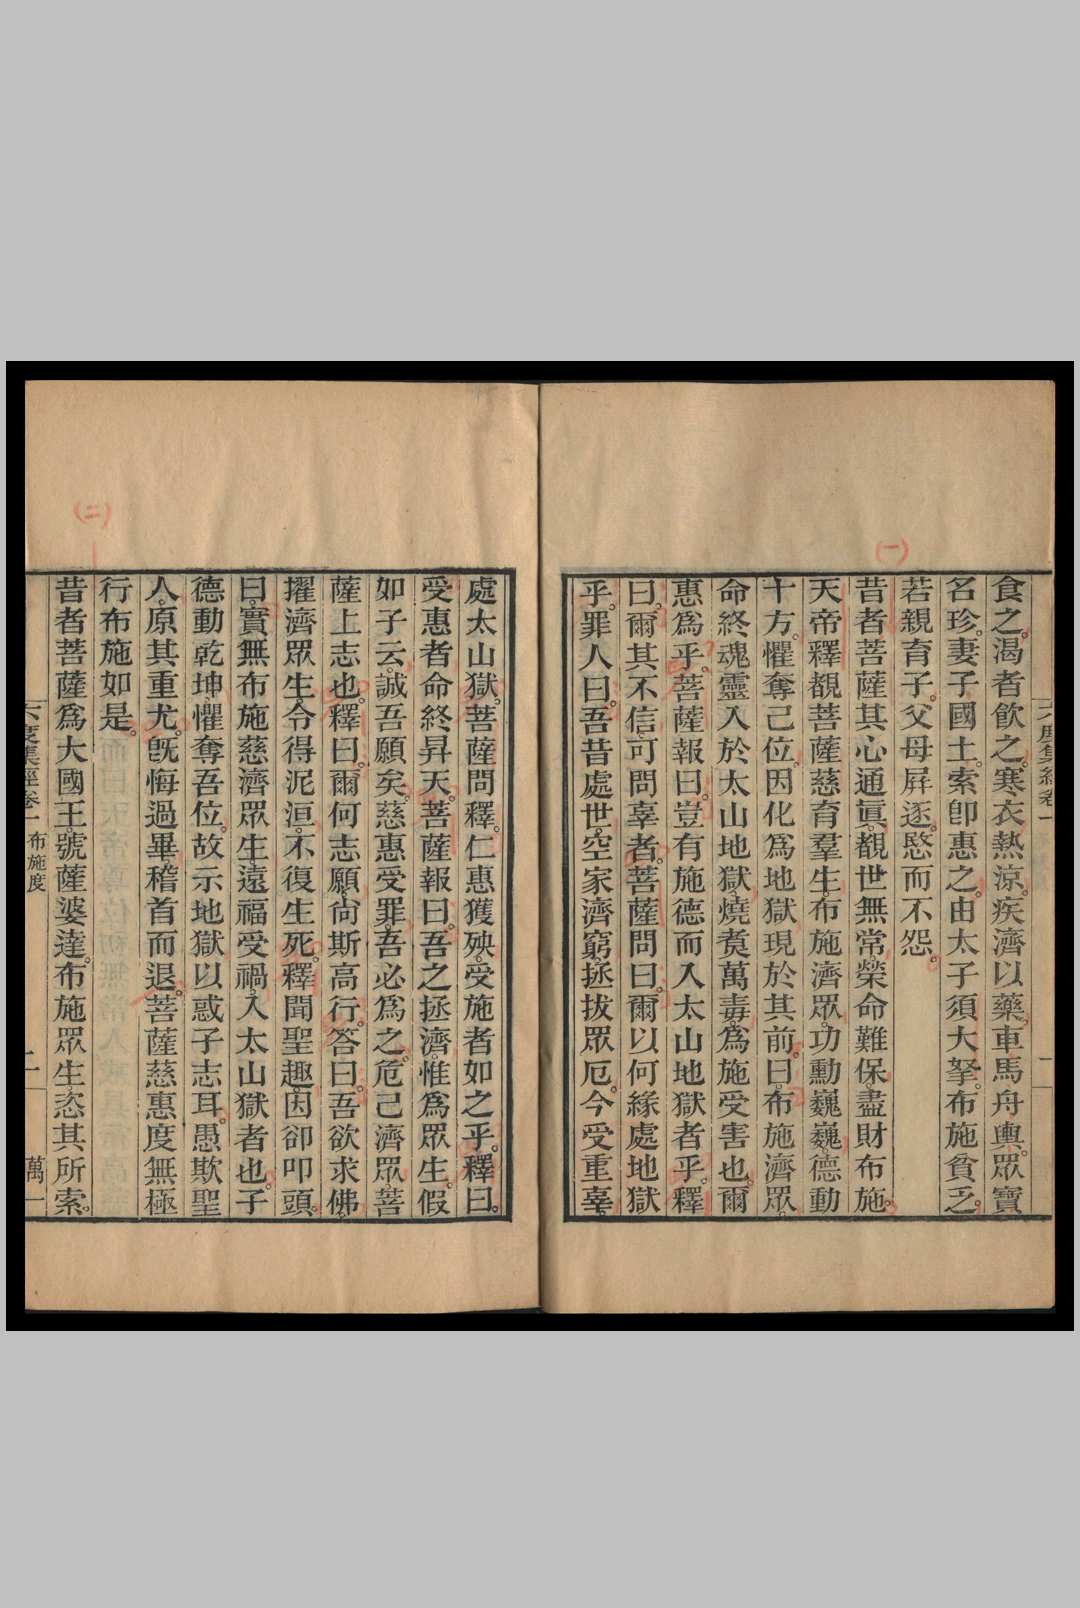 六度集經卷一
二
食之。渴者飲之。寒衣熱涼。疾濟以藥。車馬舟輿。眾寶
名珍。妻子國土。索卽惠之。由太子須大拏。布施貧乏。
若親育子。父母屛逐。愍而不怨。
(一)
昔者菩薩其心通眞。覩世無常。榮命難保。盡財布施。
天帝釋覩菩薩慈育羣生。布施濟眾。功勳巍巍。德動
十方。懼奪己位。因化爲地獄現於其前。曰。布施濟眾。
命終魂靈入於太山地獄。燒煑萬毒。爲施受害也。爾
惠爲乎。菩薩報曰。豈有施德而入太山地獄者乎。釋
曰。爾其不信。可問辜者。菩薩問曰。爾以何緣處地獄
乎。罪人曰。吾昔處世。空家濟窮。拯拔眾厄。今受重辜。
處太山獄。菩薩問釋。仁惠獲殃。受施者如之乎。釋曰。
受惠者命終昇天。菩薩報曰。吾之拯濟。惟爲眾生。假
如子云。誠吾願矣。慈惠受罪。吾必爲之。危己濟眾。菩
薩上志也。釋曰。爾何志願。尙斯高行。答曰。吾欲求佛。
擢濟眾生。令得泥洹。不復生死。釋聞聖趣。因卻叩頭。
曰。實無布施慈濟眾生。遠福受禍。入太山獄者也。子
德動乾坤。懼奪吾位。故示地獄以惑子志耳。愚欺聖
人。原其重尤。旣悔過畢。稽首而退。菩薩慈惠度無極
行布施如是。
(二)
昔者菩薩爲大國王。號薩婆達。布施眾生。恣其所索。
六度集經卷一 布施度
二
萬一